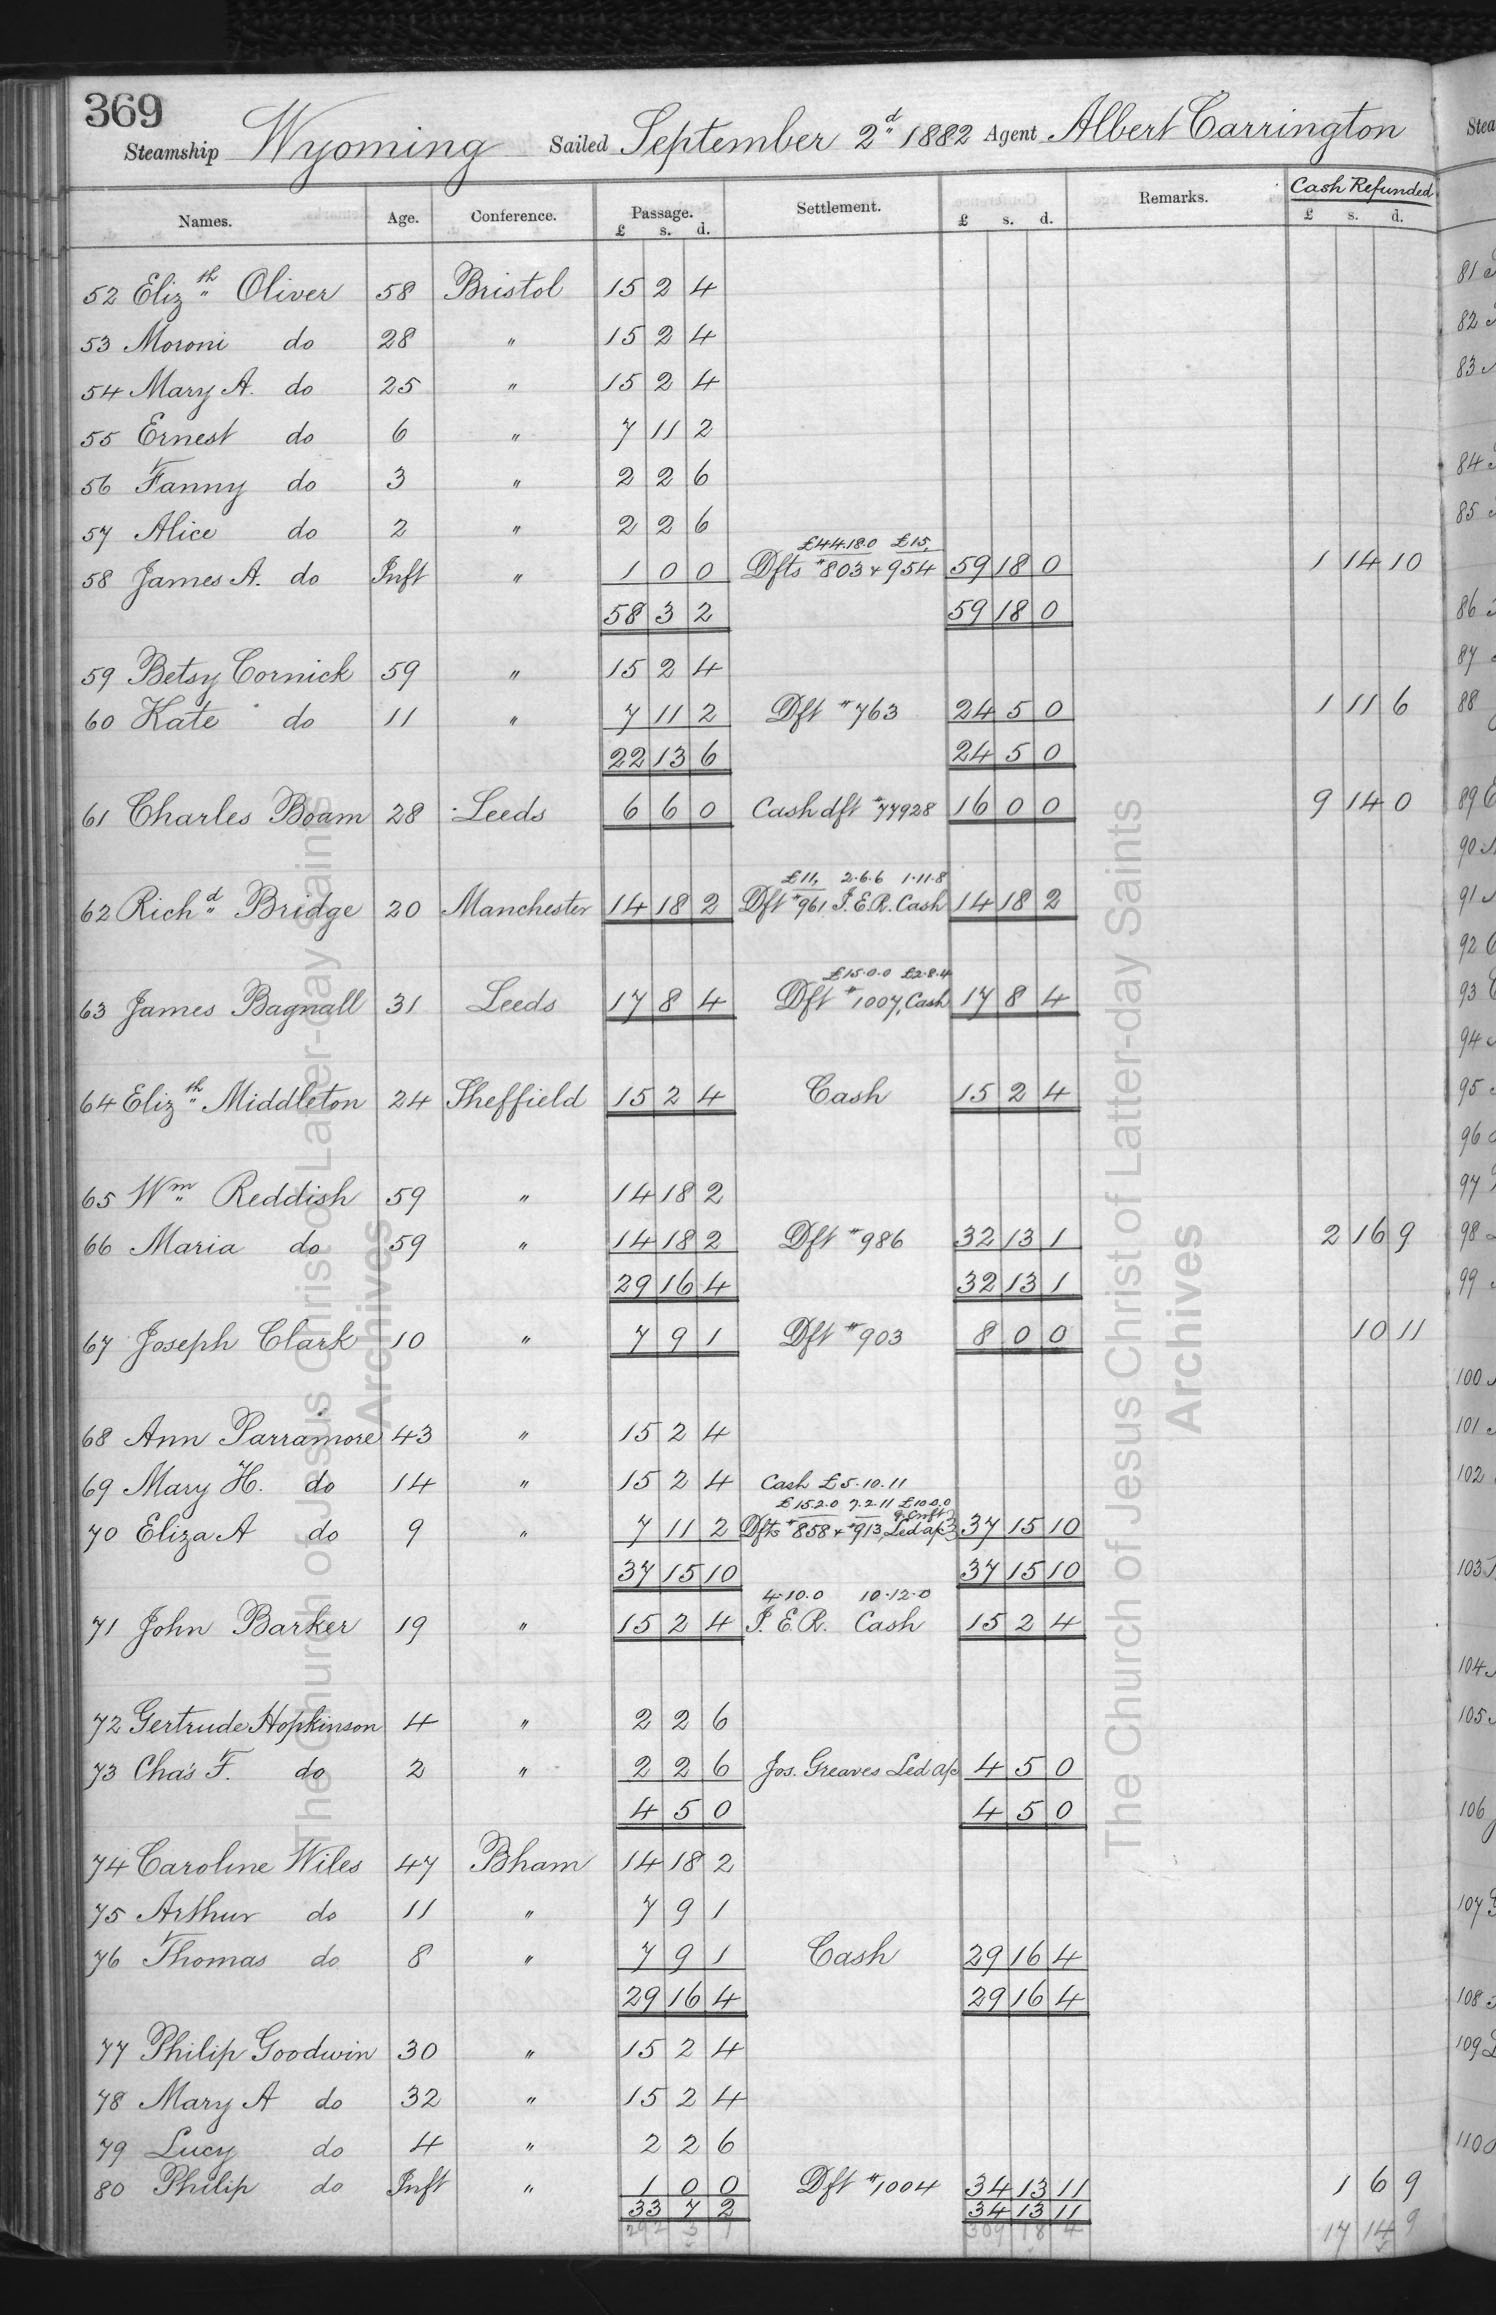 369
Steamship Wyoming Sailed September 2d 1882 Agent Albert Carrington
Names. Age. Conference. Passage. Settlement. Remarks. Cash Refunded
£ s. d. £ s. d. £ s. d.
52 Elizth Oliver 58 Bristol 15 2 4
53 Moroni do 28 " 15 2 4
54 Mary A. do 25 " 15 2 4
55 Ernest do 6 " 7 11 2
56 Fanny do 3 " 2 2 6
57 Alice do 2 " 2 2 6
£44.18.0 £15,
58 James A. do Inft " 1 0 0 Dfts #803 & 954 59 18 0 1 14 10
58 3 2 59 18 0
59 Betsy Cornick 59 " 15 2 4
60 Kate do 11 " 7 11 2 Dft #763 24 5 0 1 11 6
22 13 6 24 5 0
61 Charles Boam 28 Leeds 6 6 0 Cash dft #77928 16 0 0 9 14 0
£11, 2.6.6 1.11.8
62 Richd Bridge 20 Manchester 14 18 2 Dft #961, I.E.R. Cash 14 18 2
£15.0.0 £2.8.4
63 James Bagnall 31 Leeds 17 8 4 Dft #1007, Cash 17 8 4
64 Elizth Middleton 24 Sheffield 15 2 4 Cash 15 2 4
65 Wm Reddish 59 " 14 18 2
66 Maria do 59 " 14 18 2 Dft #986 32 13 1 2 16 9
29 16 4 32 13 1
67 Joseph Clark 10 " 7 9 1 Dft #903 8 0 0 10 11
68 Ann Parramore 43 " 15 2 4
69 Mary H. do 14 " 15 2 4 Cash £5.10.11
£15.2.0 7.2.11 £10.0.0
70 Eliza A do 9 " 7 11 2 Dfts #858 & #913, Led a/c 37 15 10
37 15 10 37 15 10
4.10.0 10.12.0
71 John Barker 19 " 15 2 4 I.E.R. Cash 15 2 4
72 Gertrude Hopkinson 4 " 2 2 6
73 Chas F. do 2 " 2 2 6 Jos. Greaves Led a/c 4 5 0
4 5 0 4 5 0
74 Caroline Wiles 47 Bham 14 18 2
75 Arthur do 11 " 7 9 1
76 Thomas do 8 " 7 9 1 Cash 29 16 4
29 16 4 29 16 4
77 Philip Goodwin 30 " 15 2 4
78 Mary A do 32 " 15 2 4
79 Lucy do 4 " 2 2 6
80 Philip do Inft " 1 0 0 Dft #1004 34 13 11 1 6 9
33 7 2 34 13 11
292 3 7 309 18 4 17 14 9
The Church of Jesus Christ of Latter-day Saints
Archives
The Church of Jesus Christ of Latter-day Saints
Archives
Stea
81
82
83
84
85
86
87
88
89
90
91
92
93
94
95
96
97
98
99
100
101
102
103
104
105
106
107
108
109
110